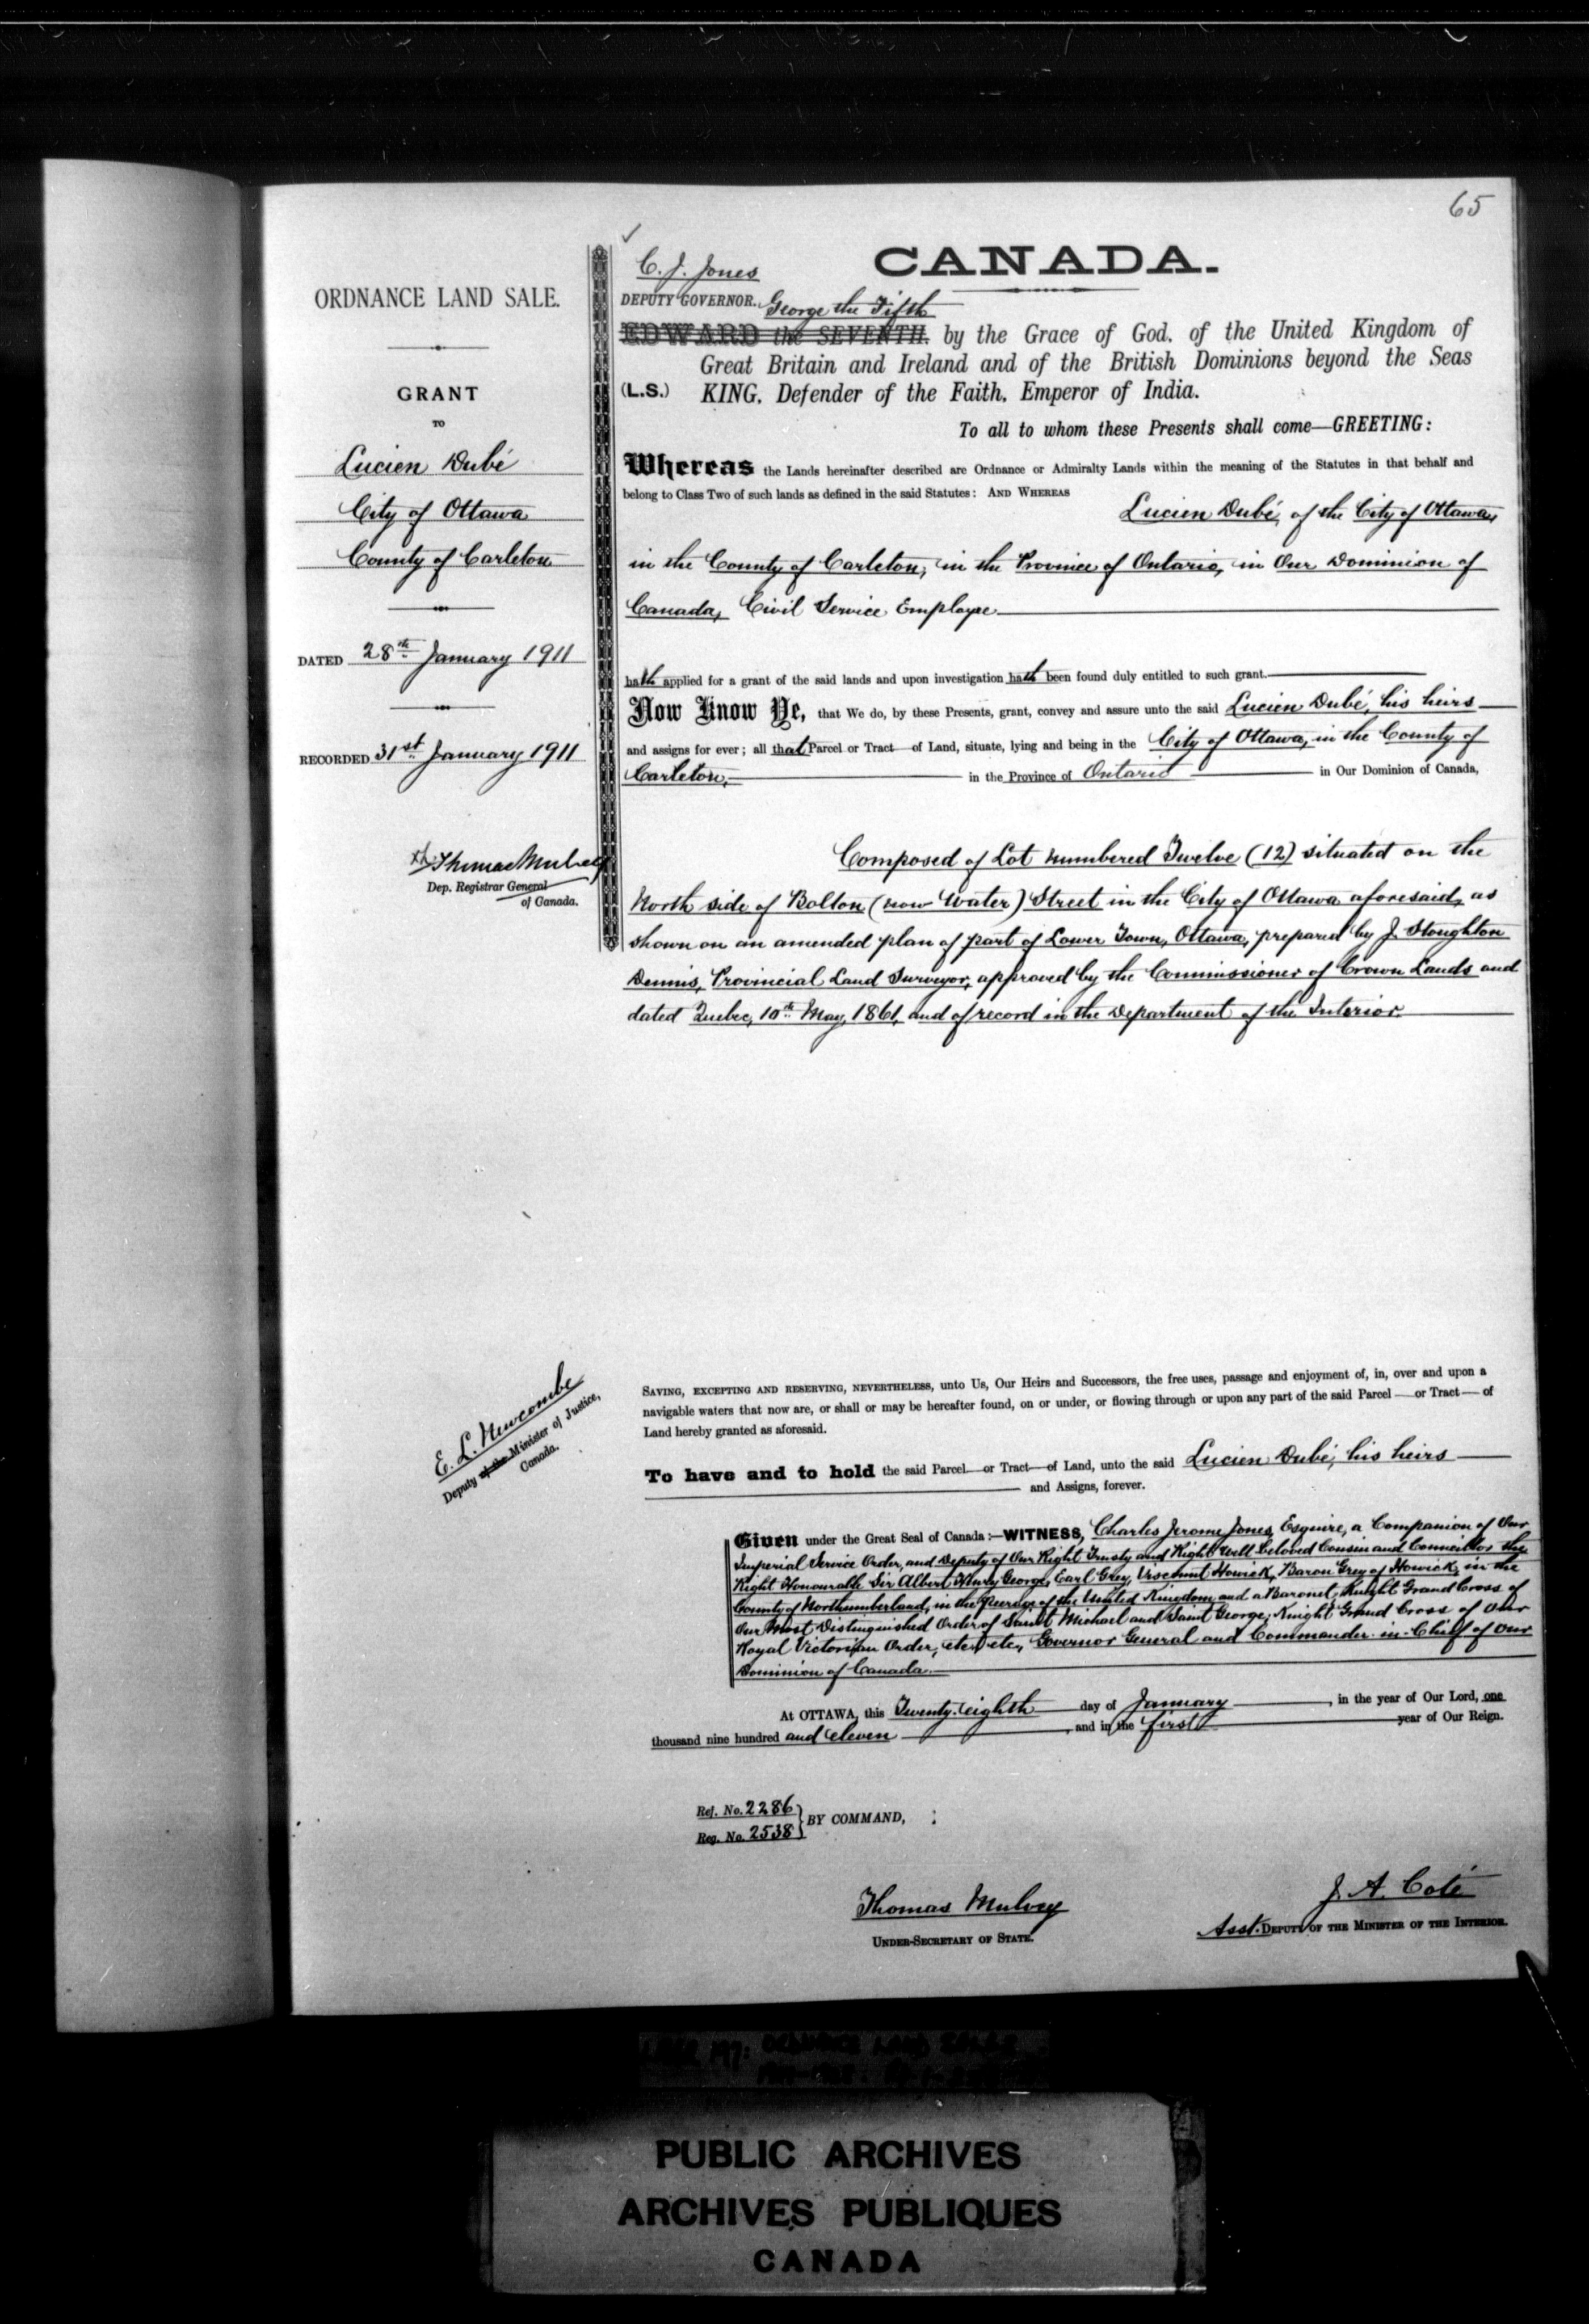 65
ORDNANCE LAND SALE.
GRANT
TO
Lucien Dubé
City of Ottawa
County of Carleton
DATED 28th January 1911
RECORDED 31st January 1911
Thomas Mulvey
Dep. Registrar General
of Canada.
CANADA.
C. J. Jones
DEPUTY GOVERNOR.
George the Fifth
EDWARD the SEVENTH. by the Grace of God, of the United Kingdom of
Great Britain and Ireland and of the British Dominions beyond the Seas
(L.S.) KING, Defender of the Faith, Emperor of India.
To all to whom these Presents shall come—GREETING:
Whereas the Lands hereinafter described are Ordnance or Admiralty Lands within the meaning of the Statutes in that behalf and
belong to Class Two of such lands as defined in the said Statutes: AND WHEREAS
Lucien Dubé, of the City of Ottawa,
in the County of Carleton, in the Province of Ontario, in Our Dominion of
Canada, Civil Service Employee
hath applied for a grant of the said lands and upon investigation hath been found duly entitled to such grant.
Now Know Ye, that We do, by these Presents, grant, convey and assure unto the said Lucien Dubé, his heirs
and assigns for ever; all that Parcel or Tract of Land, situate, lying and being in the City of Ottawa, in the County of
Carleton, in the Province of Ontario in Our Dominion of Canada,
Composed of Lot numbered Twelve (12) situated on the
North side of Bolton (now Water) Street in the City of Ottawa aforesaid, as
shown on an amended plan of part of Lower Town, Ottawa, prepared by J. Stoughton
Dennis, Provincial Land Surveyor, approved by the Commissioner of Crown Lands and
dated Quebec, 10th May, 1861, and of record in the Department of the Interior.
E. L. Newcombe
Deputy of the Minister of Justice,
Canada.
SAVING, EXCEPTING AND RESERVING, NEVERTHELESS, unto Us, Our Heirs and Successors, the free uses, passage and enjoyment of, in, over and upon a
navigable waters that now are, or shall or may be hereafter found, on or under, or flowing through or upon any part of the said Parcel or Tract of
Land hereby granted as aforesaid.
To have and to hold the said Parcel or Tract of Land, unto the said Lucien Dubé, his heirs
and Assigns, forever.
Given under the Great Seal of Canada:—WITNESS, Charles Jerome Jones, Esquire, a Companion of Our
Imperial Service Order, and Deputy of Our Right Trusty and Right Well Beloved Cousin and Councillor the
Right Honourable Sir Albert Henry George, Earl Grey, Viscount Howick, Baron Grey of Howick, in the
County of Northumberland, in the Peerage of the United Kingdom, and a Baronet; Knight Grand Cross of
Our Most Distinguished Order of Saint Michael and Saint George; Knight Grand Cross of Our
Royal Victorian Order, etc., etc., Governor General and Commander-in-Chief of Our
Dominion of Canada.
At OTTAWA, this Twenty-eighth day of January, in the year of Our Lord, one
thousand nine hundred and eleven, and in the first year of Our Reign.
Ref. No. 2286
Reg. No. 2538
BY COMMAND,
Thomas Mulvey
UNDER-SECRETARY OF STATE.
J. A. Coté
Asst. DEPUTY OF THE MINISTER OF THE INTERIOR.
PUBLIC ARCHIVES
ARCHIVES PUBLIQUES
CANADA